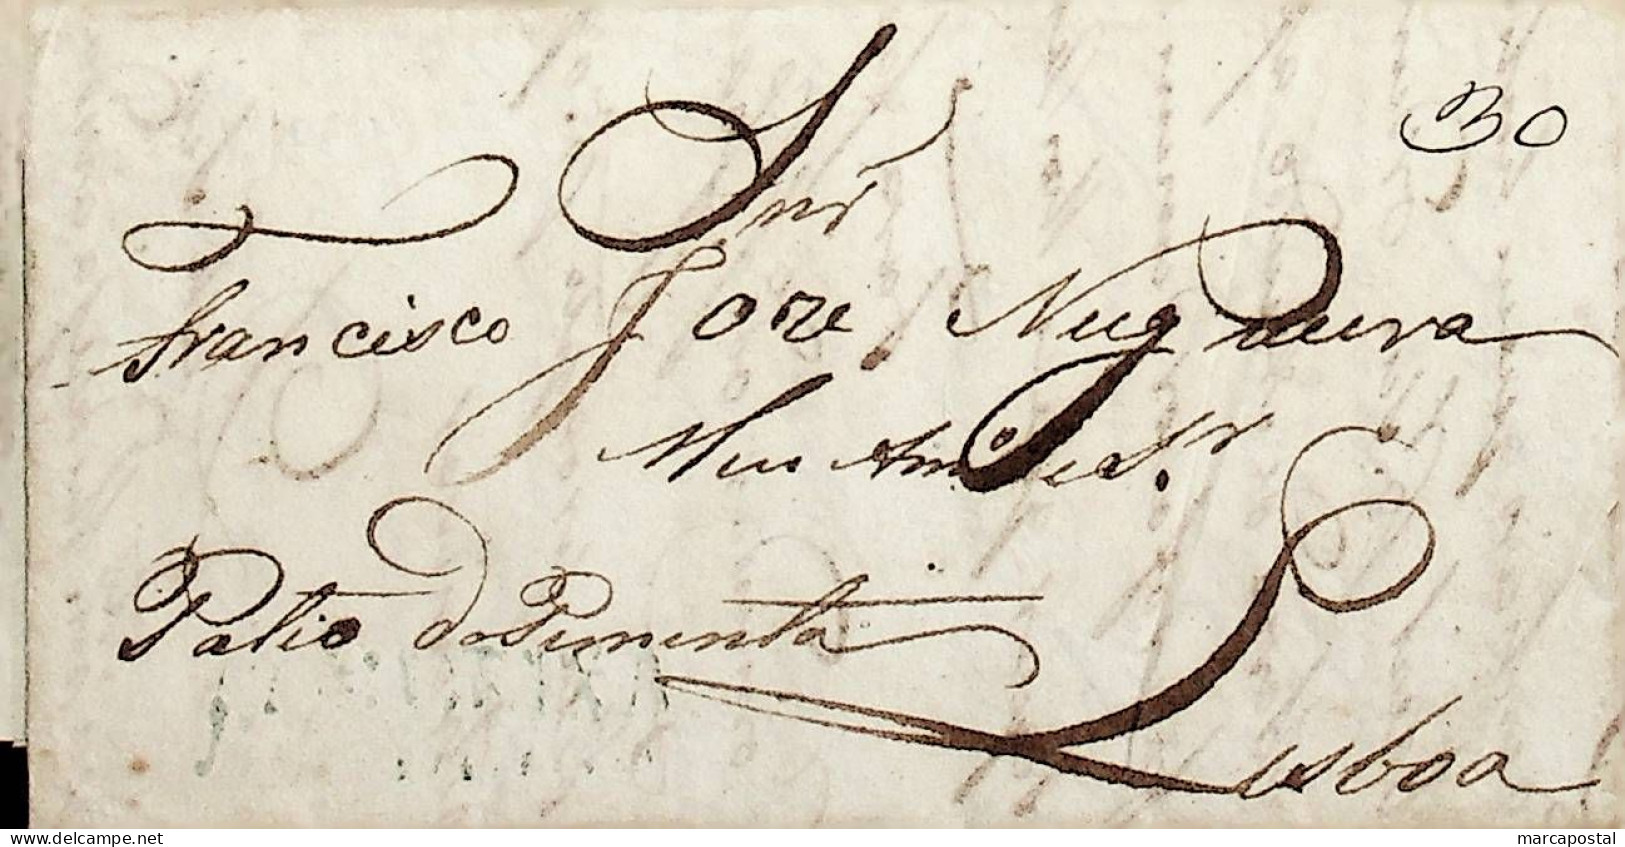 30
Snr
Francisco Joze Nugueira
Meu Amº e Sr.
Patio do Pimenta
Lisboa
marcapostal